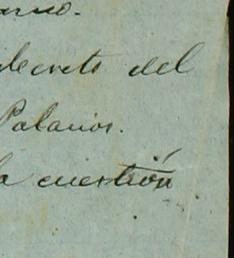 decreto del
Palacios.
la cuestión